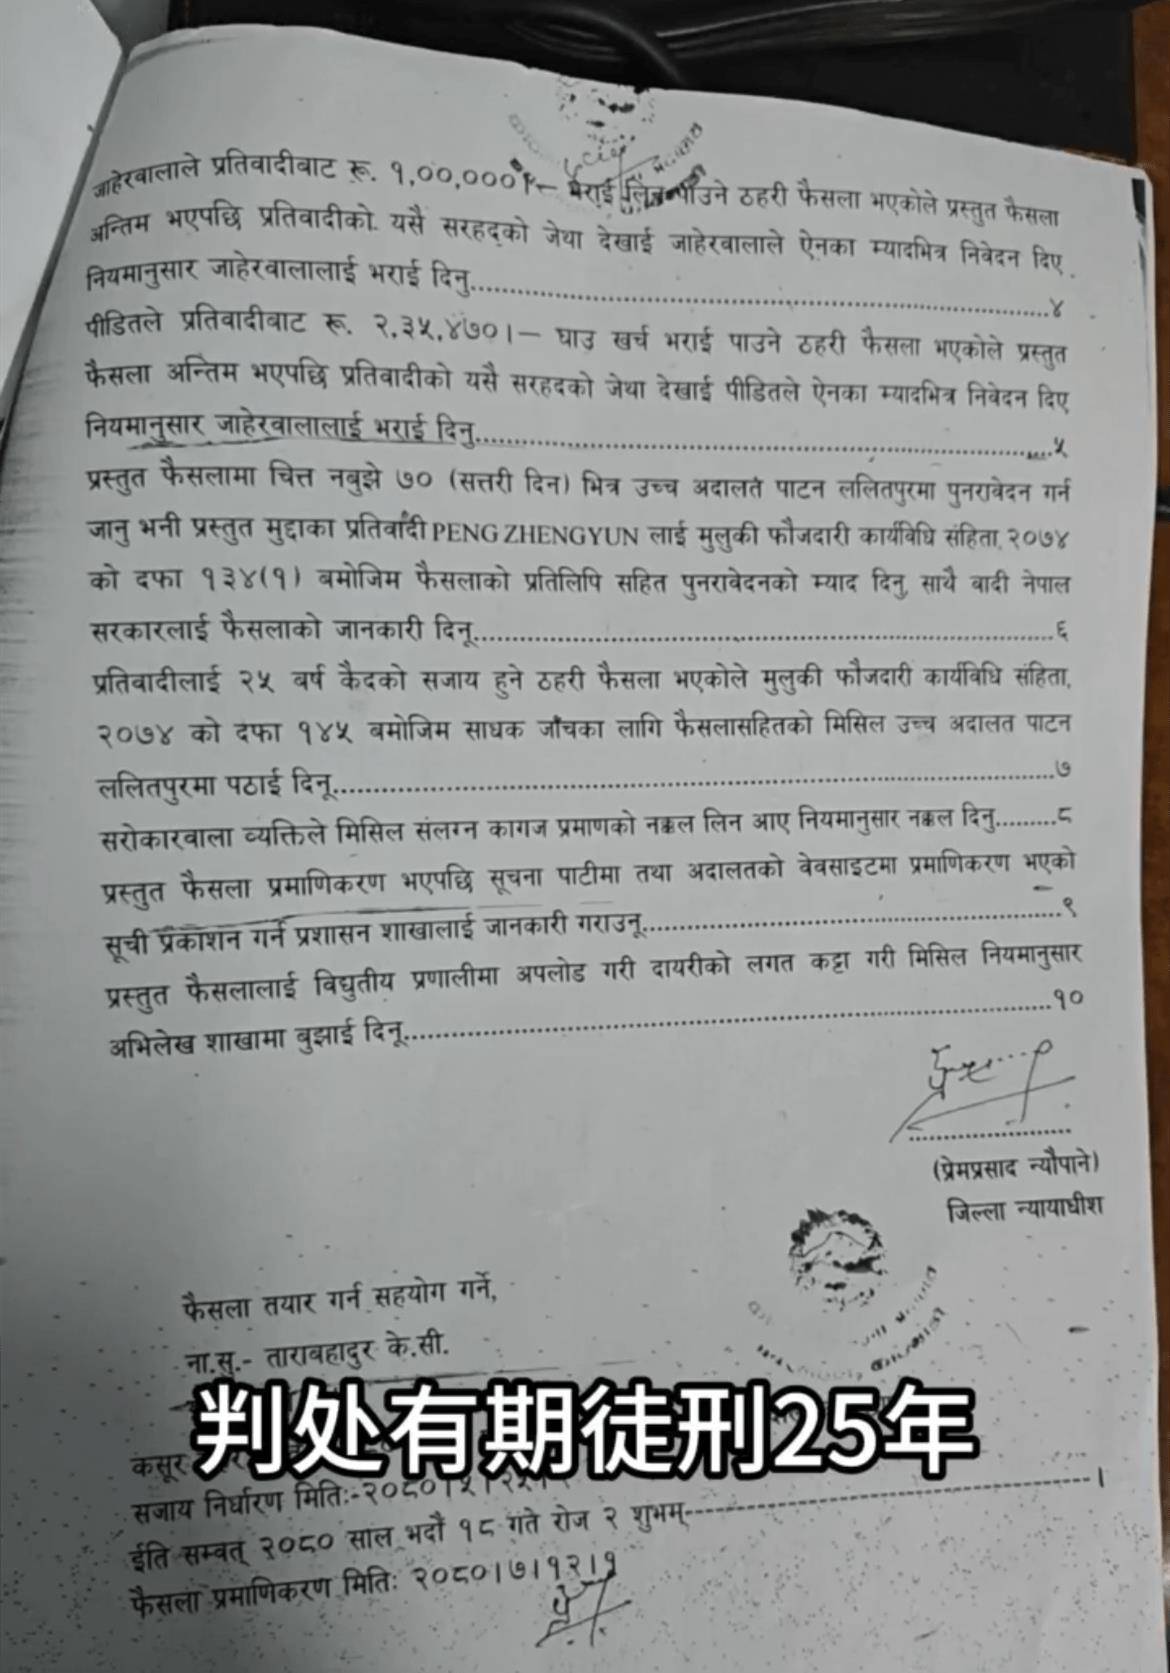 जाहेरवालाले प्रतिवादीबाट रू. १,००,०००।– भराई लिन पाउने ठहरी फैसला भएकोले प्रस्तुत फैसला
अन्तिम भएपछि प्रतिवादीको यसै सरहद्को जेथा देखाई जाहेरवालाले ऐनका म्यादभित्र निवेदन दिए
नियमानुसार जाहेरवालालाई भराई दिनु....................४
पीडितले प्रतिवादीबाट रू. २,३५,४७०।– घाउ खर्च भराई पाउने ठहरी फैसला भएकोले प्रस्तुत
फैसला अन्तिम भएपछि प्रतिवादीको यसै सरहदको जेथा देखाई पीडितले ऐनका म्यादभित्र निवेदन दिए
नियमानुसार जाहेरवालालाई भराई दिनु....................५
प्रस्तुत फैसलामा चित्त नबुझे ७० (सत्तरी दिन) भित्र उच्च अदालत पाटन ललितपुरमा पुनरावेदन गर्न
जानु भनी प्रस्तुत मुद्दाका प्रतिवादी PENG ZHENGYUN लाई मुलुकी फौजदारी कार्यविधि संहिता, २०७४
को दफा १३४(१) बमोजिम फैसलाको प्रतिलिपि सहित पुनरावेदनको म्याद दिनु, साथै वादी नेपाल
सरकारलाई फैसलाको जानकारी दिनू....................६
प्रतिवादीलाई २५ बर्ष कैदको सजाय हुने ठहरी फैसला भएकोले मुलुकी फौजदारी कार्यविधि संहिता,
२०७४ को दफा १४५ बमोजिम साधक जाँचका लागि फैसलासहितको मिसिल उच्च अदालत पाटन
ललितपुरमा पठाई दिनू....................७
सरोकारवाला व्यक्तिले मिसिल संलग्न कागज प्रमाणको नक्कल लिन आए नियमानुसार नक्कल दिनु.........८
प्रस्तुत फैसला प्रमाणिकरण भएपछि सूचना पाटीमा तथा अदालतको वेवसाइटमा प्रमाणिकरण भएको
सूची प्रकाशन गर्न प्रशासन शाखालाई जानकारी गराउनू....................९
प्रस्तुत फैसलालाई विद्युतीय प्रणालीमा अपलोड गरी दायरीको लगत कट्टा गरी मिसिल नियमानुसार
अभिलेख शाखामा बुझाई दिनू....................१०
(प्रेमप्रसाद न्यौपाने)
जिल्ला न्यायाधीश
फैसला तयार गर्न सहयोग गर्ने,
ना.सु.- ताराबहादुर के.सी.
判处有期徒刑25年
कसूर
सजाय निर्धारण मितिः-२०८०।५।२५।
ईति सम्वत् २०८० साल भदौ १८ गते रोज २ शुभम्--------------------।
फैसला प्रमाणिकरण मितिः २०८०।७।१२।१